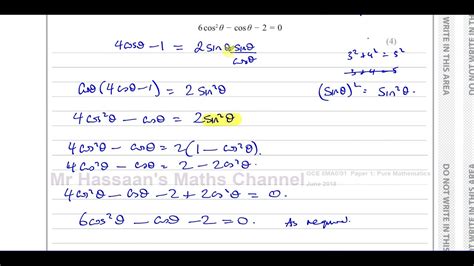 6cos²θ − cosθ − 2 = 0
(4)
4cosθ − 1 = 2sinθ sinθ/cosθ
3² + 4² = 5²
3 + 4 = 5
cosθ(4cosθ − 1) = 2sin²θ
(sinθ)² = sin²θ
4cos²θ − cosθ = 2sin²θ
4cos²θ − cosθ = 2(1 − cos²θ)
4cos²θ − cosθ = 2 − 2cos²θ
Mr Hassaan's Maths Channel
GCE EMA0/01 Paper 1: Pure Mathematics
June 2018
4cos²θ − cosθ − 2 + 2cos²θ = 0
6cos²θ − cosθ − 2 = 0. As required.
DO NOT WRITE IN THIS AREA
DO NOT WRITE IN THIS AREA
DO NOT WRITE IN THIS AREA